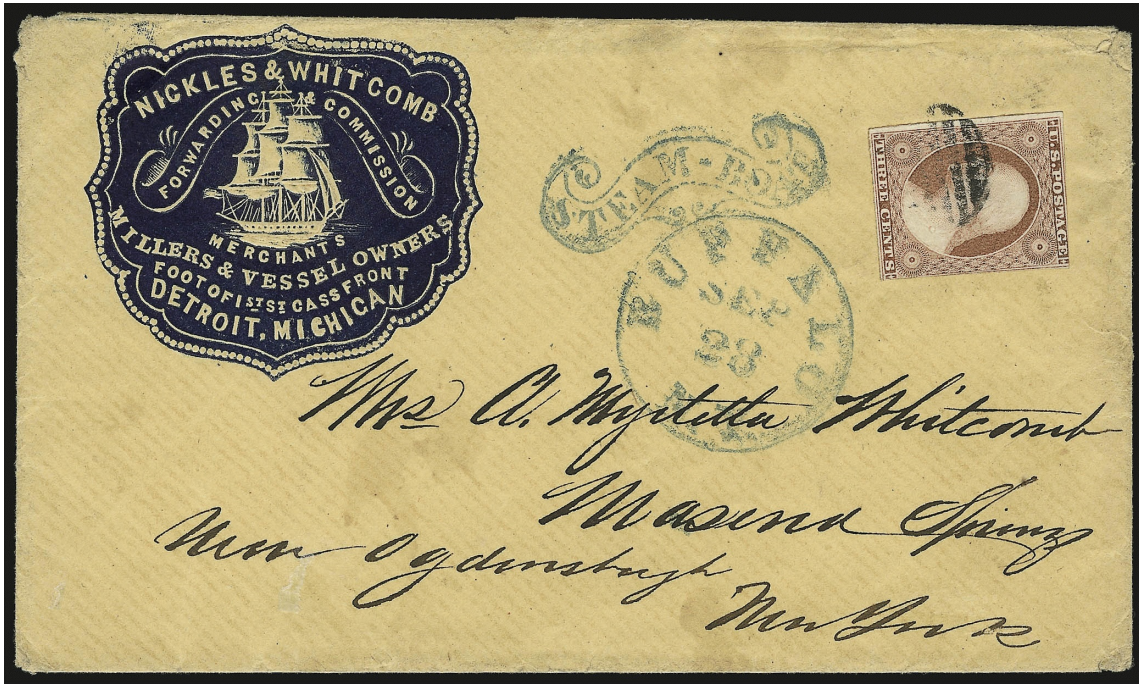 NICKLES & WHITCOMB
FORWARDING & COMMISSION
MERCHANTS
MILLERS & VESSEL OWNERS
FOOT OF 1ST ST CASS FRONT
DETROIT, MICHIGAN
STEAM-BOAT
BUFFALO
SEP
23
N.Y.
U.S. POSTAGE
THREE CENTS
Mrs A. Myrtetta Whitcomb
Masena Springs
Near Ogdensburgh
New York